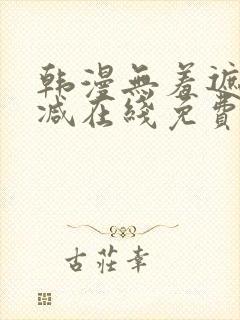 韩漫無羞遮
减在綫免費
古莊幸